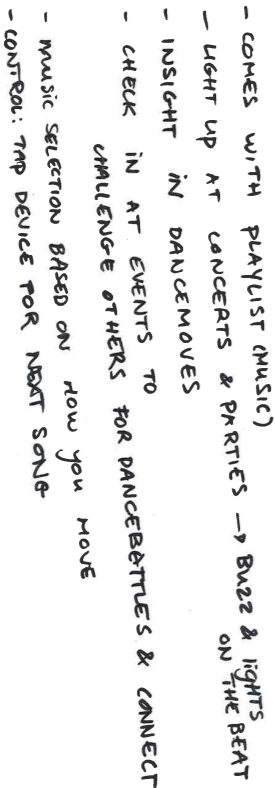 - COMES WITH PLAYLIST (MUSIC)
- LIGHT UP AT CONCERTS & PARTIES → BUZZ & lIGHTS
ON THE BEAT
- INSIGHT IN DANCEMOVES
- CHECK IN AT EVENTS TO
CHALLENGE OTHERS FOR DANCEBATTLES & CONNECT
- MUSIC SELECTION BASED ON HOW YOU MOVE
- CONTROL: TAP DEVICE FOR NEXT SONG